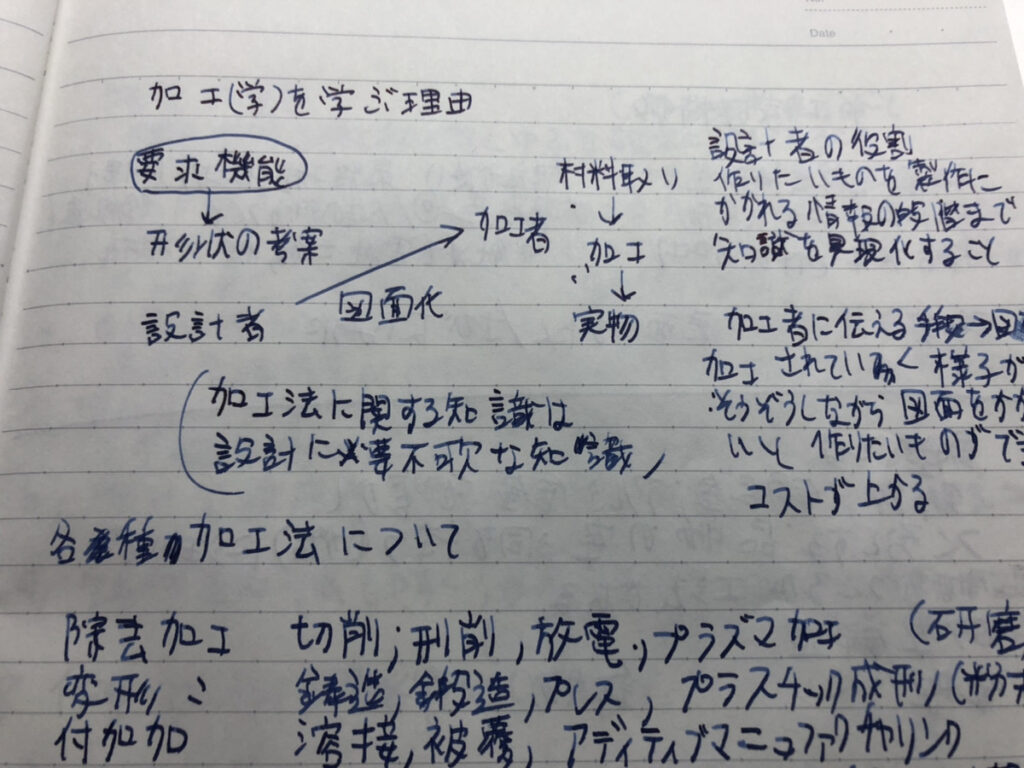 Date
加工(学)を学ぶ理由
要求機能
↓
形状の考案
設計者
図面化
加工者
材料取り
↓
加工
↓
実物
設計者の役割
作りたいものを製作に
かかれる情報の段階まで
知識を具現化すること
加工者に伝える手段→図
加工されていく様子が
そうぞうしながら図面をかか
いと作りたいものができ
コストが上がる
(加工法に関する知識は
設計に必要不可欠な知識
各種加工法について
除去加工 切削,研削,放電,プラズマ加工 (研磨
変形〃 鋳造,鍛造,プレス,プラスチック成形(粉末
付加加 溶接,被覆,アディティブマニュファクチャリング